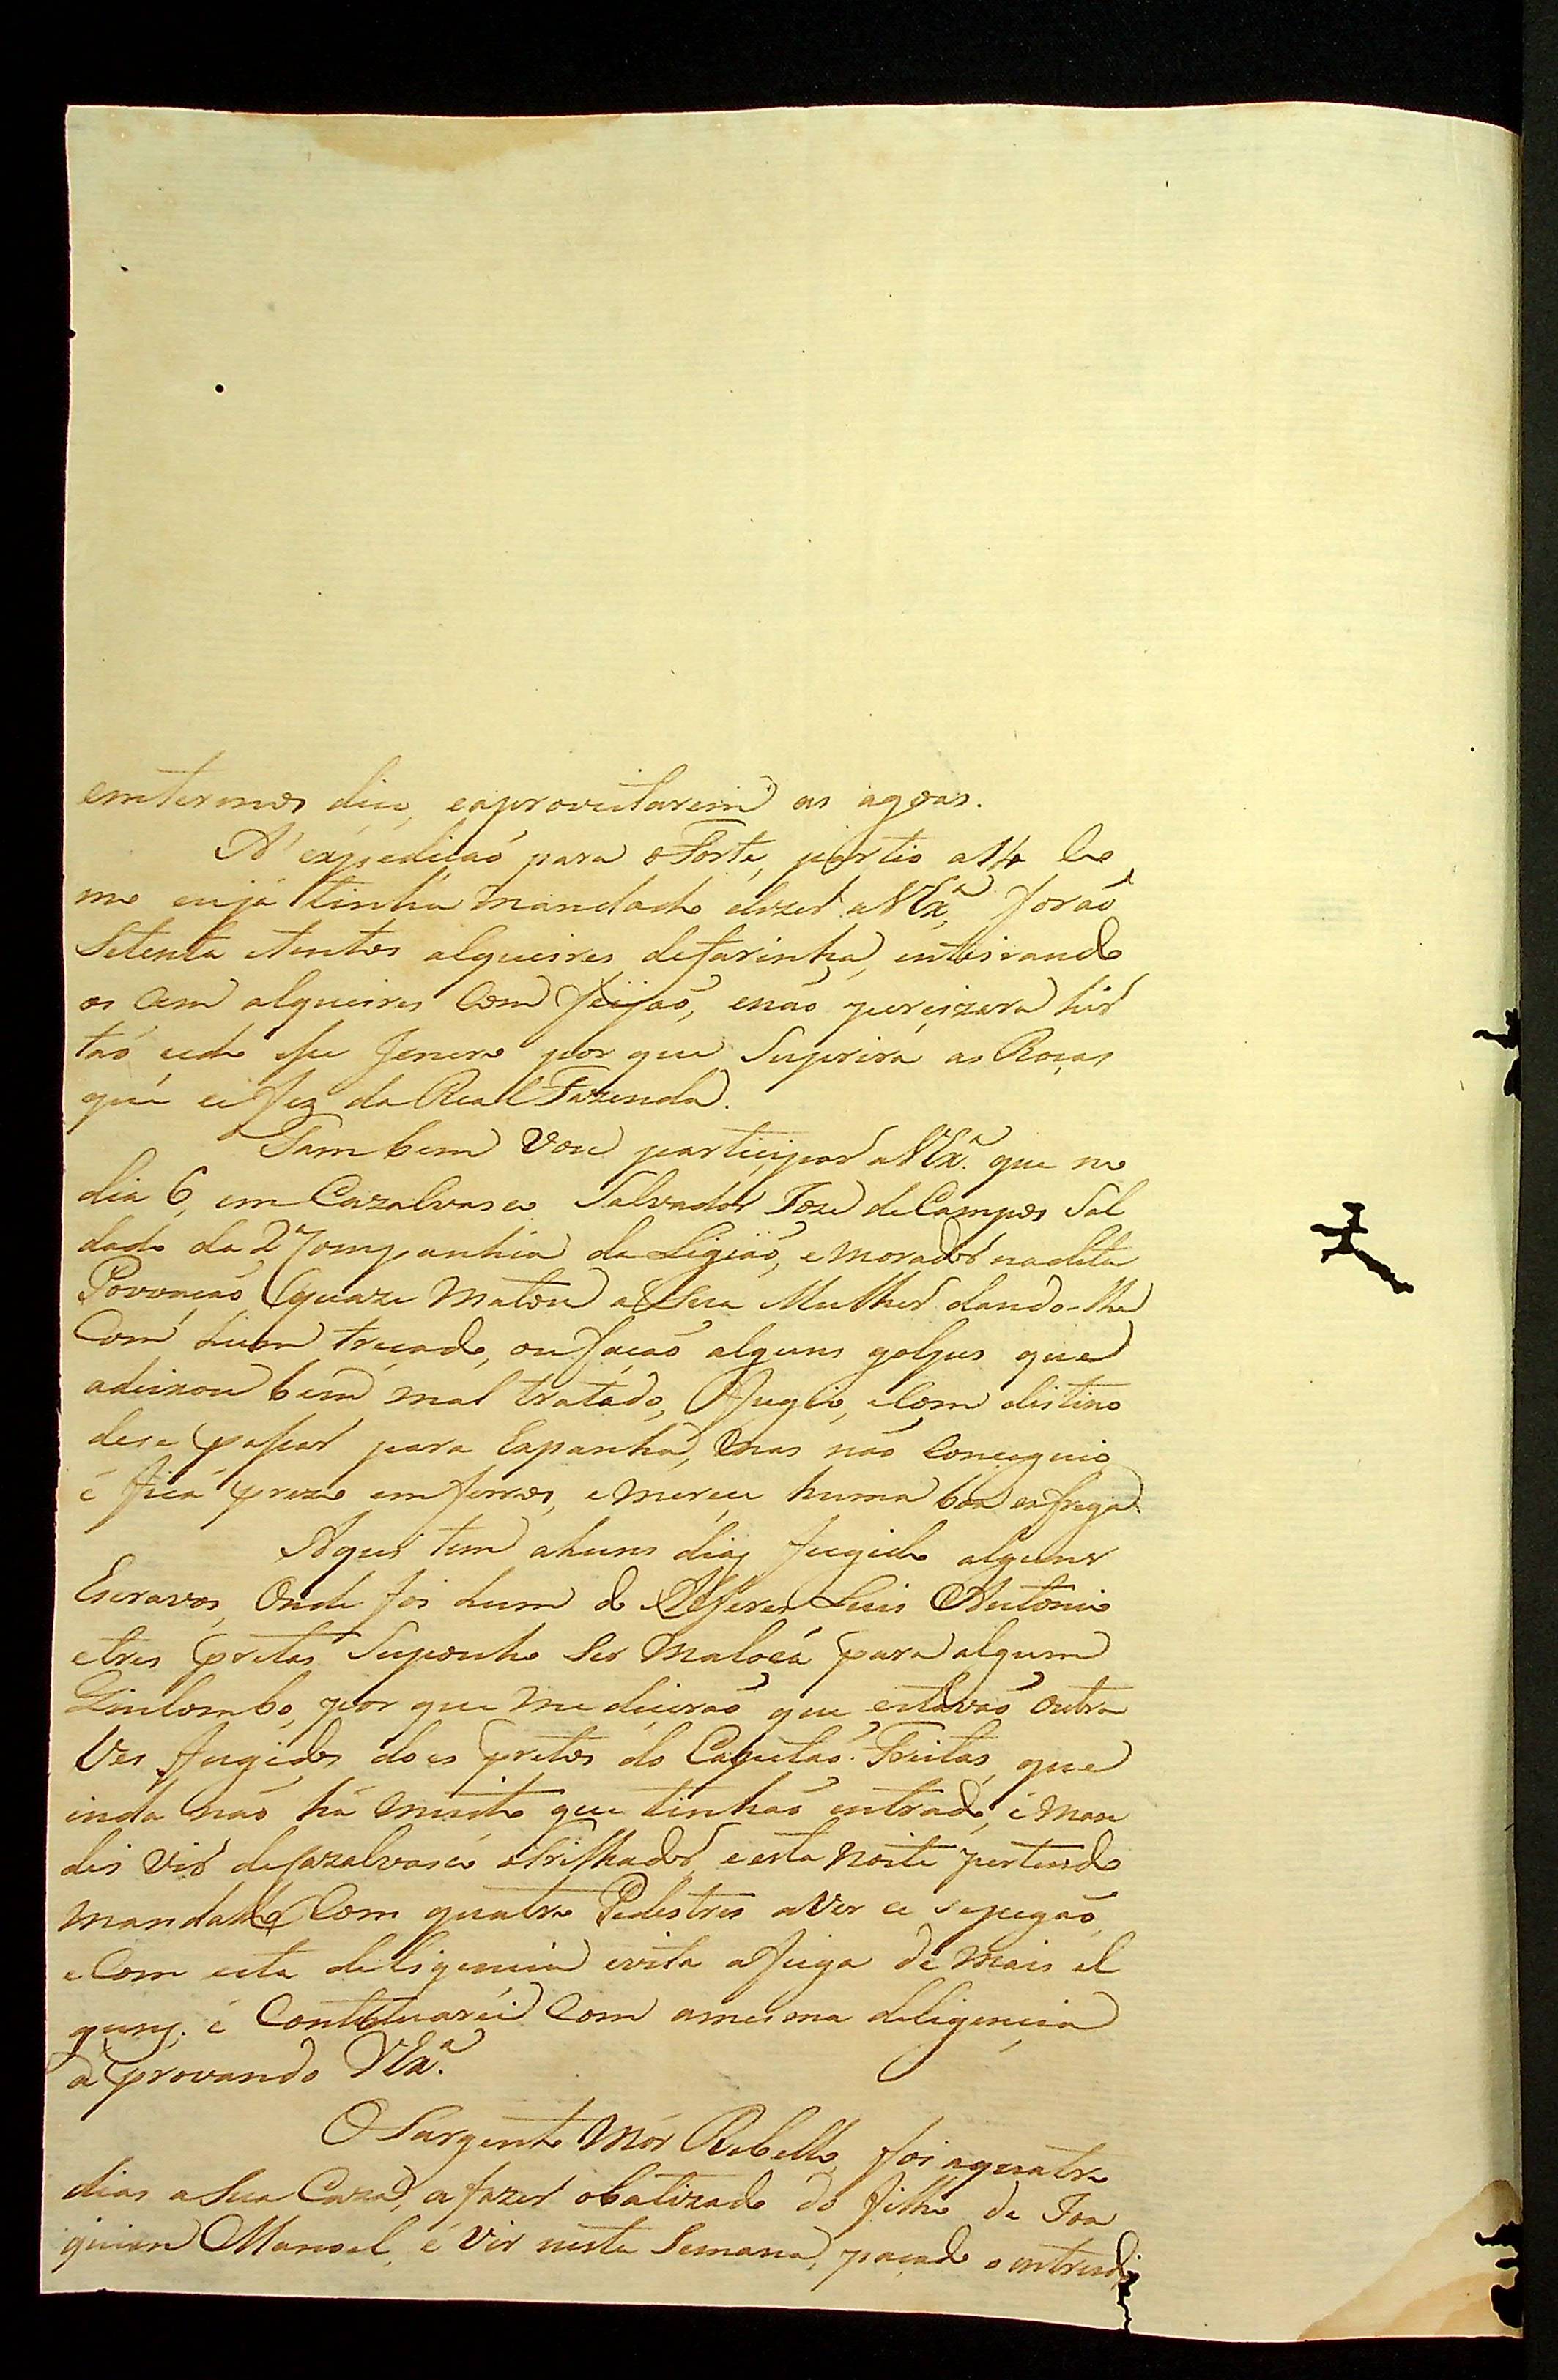 emtermos dice, eaproveitarem as agoas.
A' expedicaó para o Forte, partio a 14 co
mo eujá tinha mandado dizer a VExª, foraó
Setenta etantos alqueires defarinha, enteirando
os cem alqueires Com feijaó, enaó percizara hir
taó cedo esse Jenero por que Suprirá as Roças
que ce fez da Real Fazenda.
Tambem Vou participar a VExª. que no
dia 6, em Cazalvasco Salvador Joze de Campos Sol
dado da 2ª Companhia da Ligiaó, e morador nadita
Povoacaó, quaze Matou a Sua Mulher dando-lhe
Com hum traçado, ou facaó alguns golpes que
adeixou bem mal tratado, fugio, eCom distino
dese passar para Espanha, Mas naó Conceguio
é fica prezo emferros, e merece huma boa esfrega.
Aqui tem ahuns dias fugido alguns
Escravos, Onde foi hum do Alferes Luis Antonio
etres pretas Suponho Ser Maloca para algum
Quilombo, por que me diceraó que estavaó outra
Ves fugidos dois pretos do Capitaó Freitas, que
inda naó há muito que tinhaó entrado, é Man
dei vir deCazalvasco otrilhador, e esta Noite pertendo
mandallo Com quatro Pedestres a Ver ce sepegaó,
eCom esta deligencia evita afuga de Mais al
guns; é Continuaréi Com amesma deligencia
aprovando VExª.
O Sargento Mór Rebello, foi aquatro
dias a Sua Caza, a fazer obatizado do filho de Joa
quim Manoel, é Vir nesta Semana, paçado o entrudo